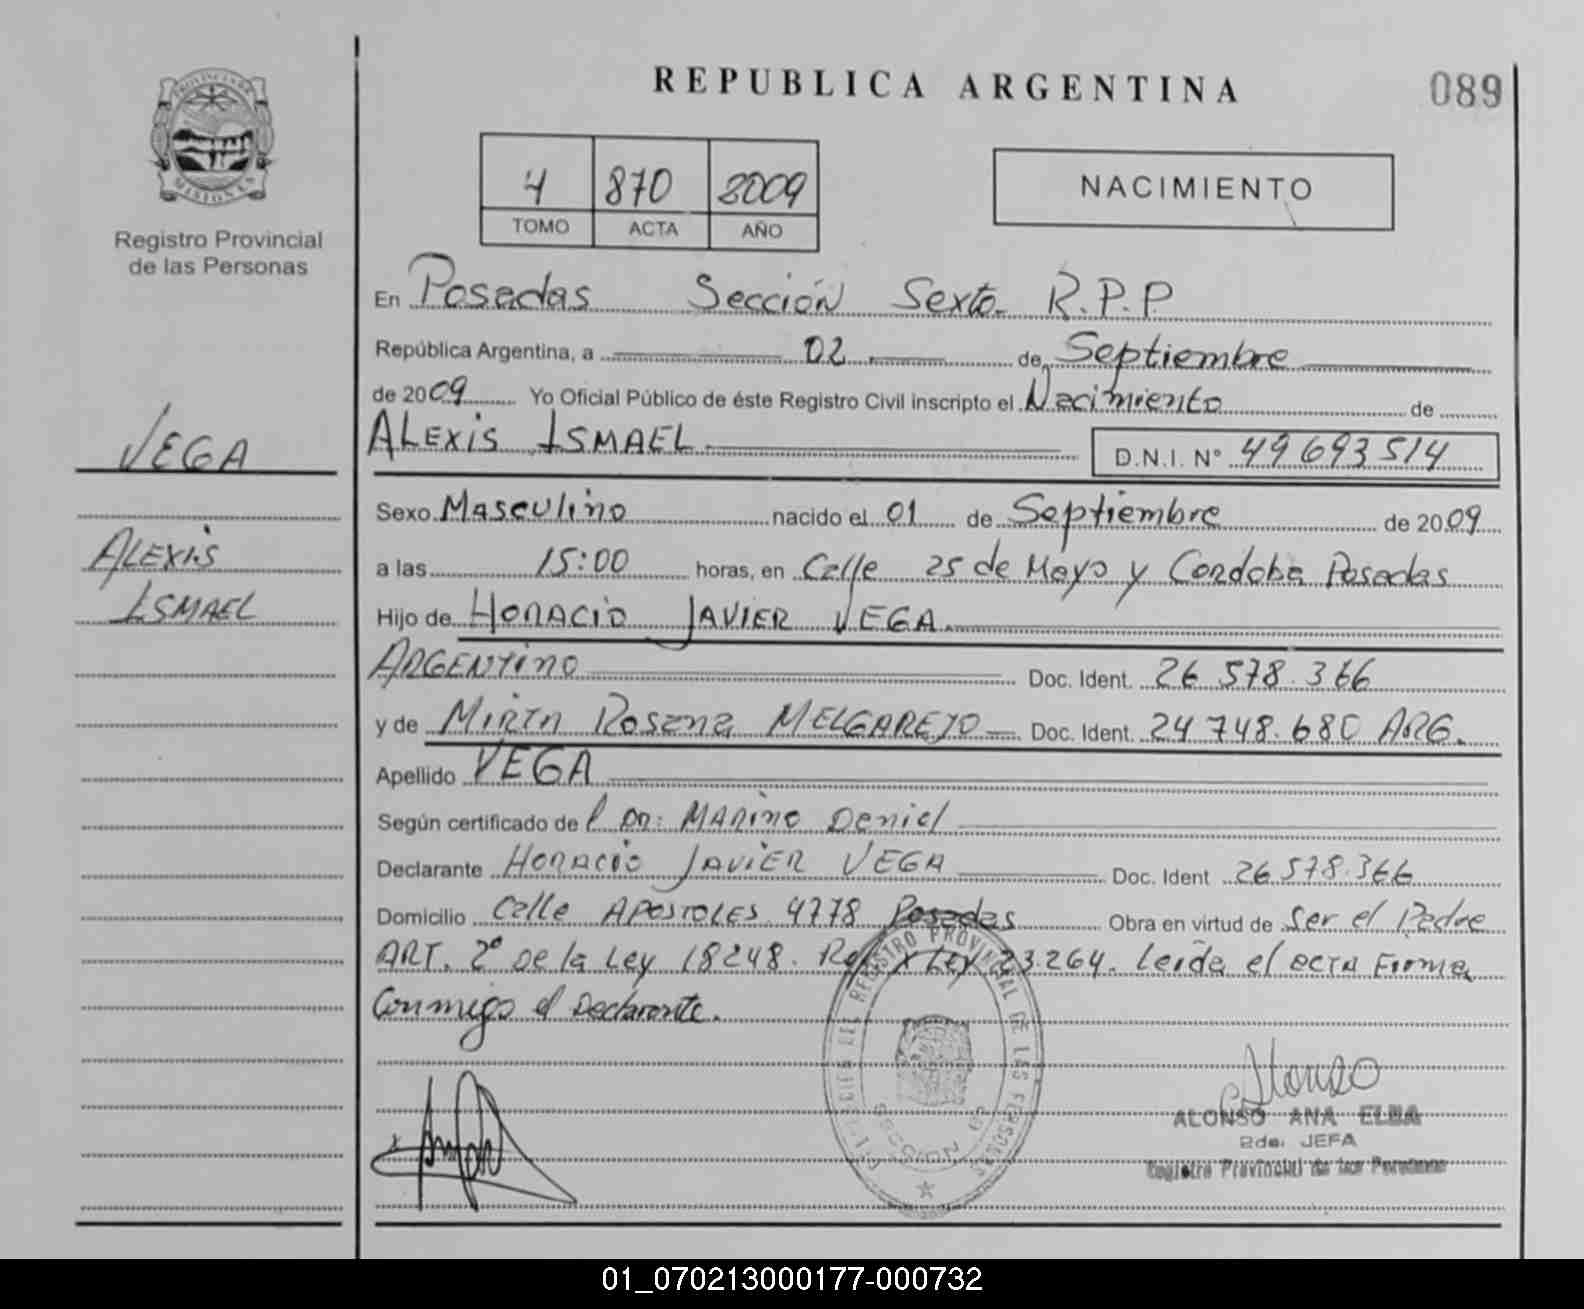 REPUBLICA ARGENTINA
089
PROVINCIA DE
MISIONES
Registro Provincial
de las Personas
4 870 2009
TOMO ACTA AÑO
NACIMIENTO
En Posadas Sección Sexta R.P.P.
República Argentina, a 02 de Septiembre
de 2009 Yo Oficial Público de éste Registro Civil inscripto el Nacimiento de
ALEXIS ISMAEL D.N.I. N° 49693514
VEGA
ALEXIS
ISMAEL
Sexo Masculino nacido el 01 de Septiembre de 2009
a las 15:00 horas, en Calle 25 de Mayo y Cordoba Posadas
Hijo de HORACIO JAVIER VEGA
ARGENTINO Doc. Ident. 26 578.366
y de MIRTA Rosana MELGAREJO Doc. Ident. 24 748.680 ARG.
Apellido VEGA
Según certificado de l Dr: MARINO Daniel
Declarante HORACIO JAVIER VEGA Doc. Ident 26.578.366
Domicilio Calle APOSTOLES 4778 Posadas Obra en virtud de ser el Padre
ART. 2° De la Ley 18248. Ref x Ley 23.264. Leida el acta Firma
Conmigo el Declarante.
REGISTRO PROVINCIAL DE LAS PERSONAS
SECCION
Alonso
ALONSO ANA ELBA
2da. JEFA
Registro Provincial de las Personas
01_070213000177-000732